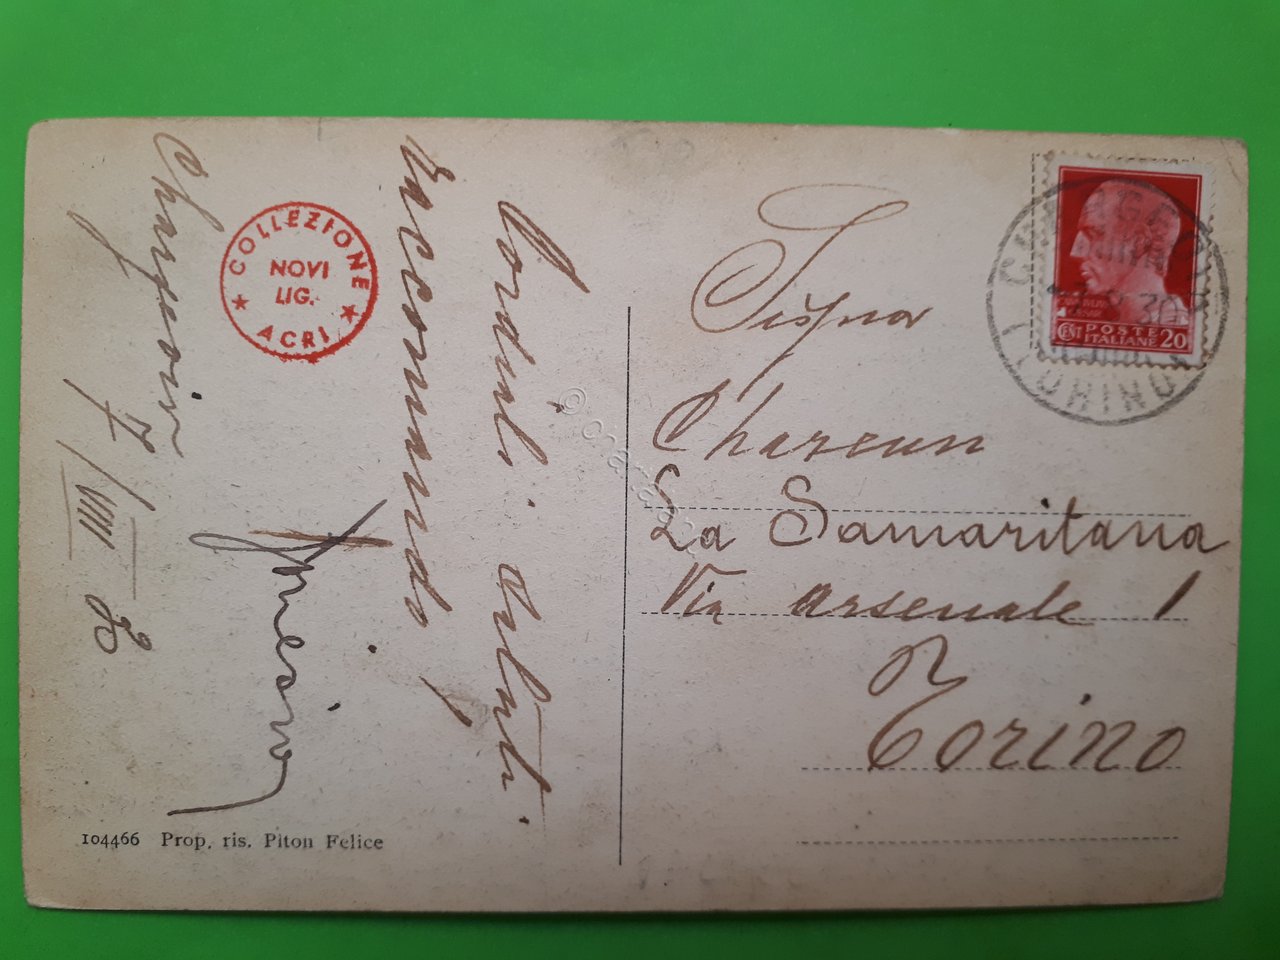 Chargeoir
7/VIII 30
COLLEZIONE
NOVI
LIG.
ACRI
Cordiali saluti
104466 Prop. ris. Piton Felice
Sigra
Chareun
La Samaritana
Via Arsenale 1
Torino
POSTE
ITALIANE
CENT
20
30
TORINO
© cartan